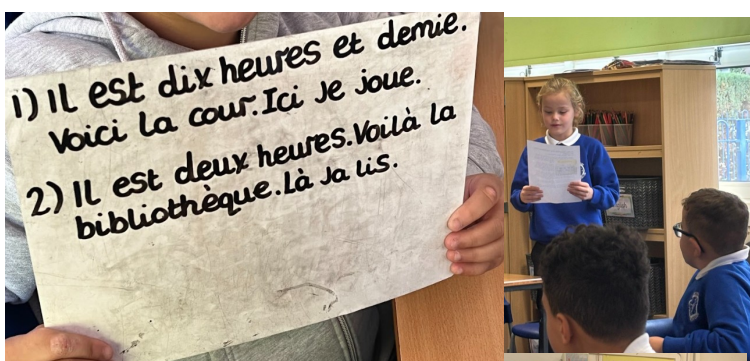 1) Il est dix heures et demie.
Voici la cour. Ici je joue.
2) Il est deux heures. Voilà la
bibliothèque. Là ja lis.